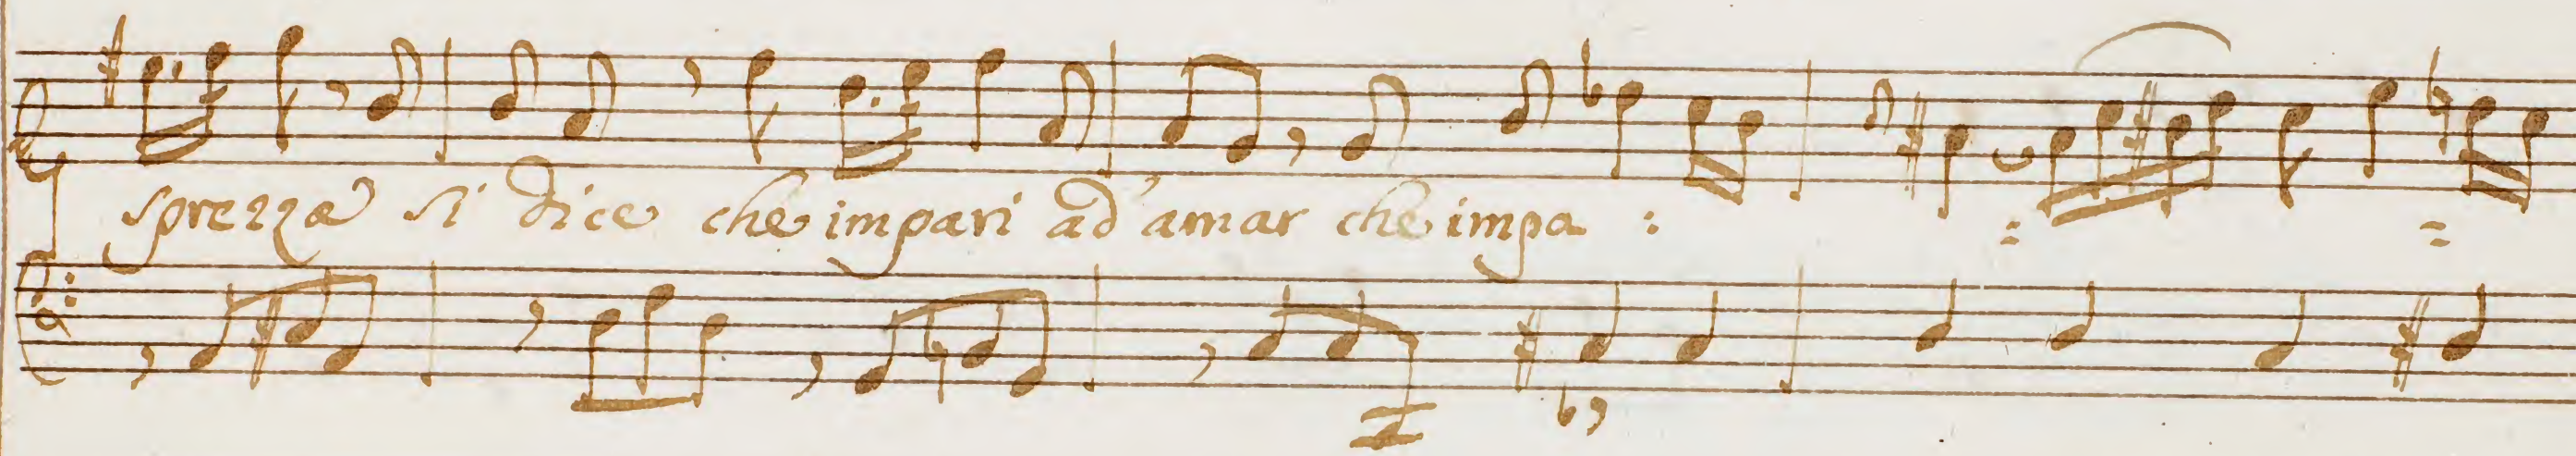 sprezza si dice che impari ad' amar che impa : = =
b7